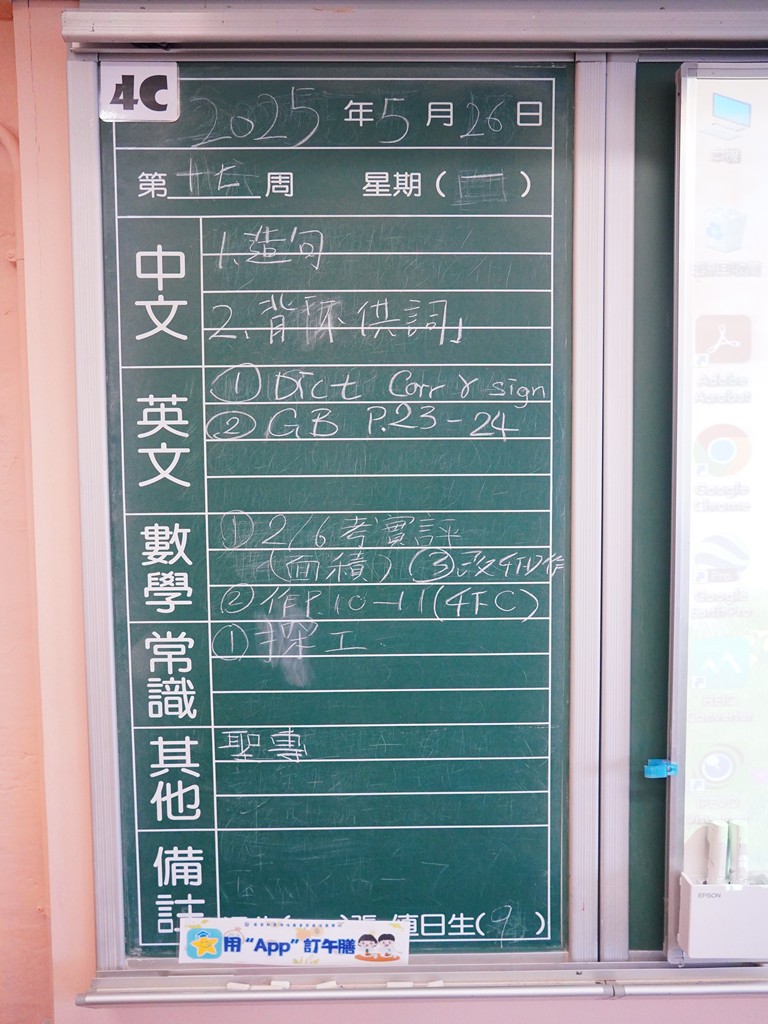 4C
2025 年 5 月 26 日
第 十七 周 星期 ( 一 )
中文
1. 造句
2. 背 供詞」
英文
① Dict Corr & sign
② GB P.23-24
數學
① 2/6 考實評
(面積) ③ 改 作
② 作P.10-11(4下C)
常識
① 工
其他
聖
備註
值日生( 9 )
用“App”訂午膳
本機
Adobe
Acrobat
Google
Chrome
Google
Earth Pro
EPSON